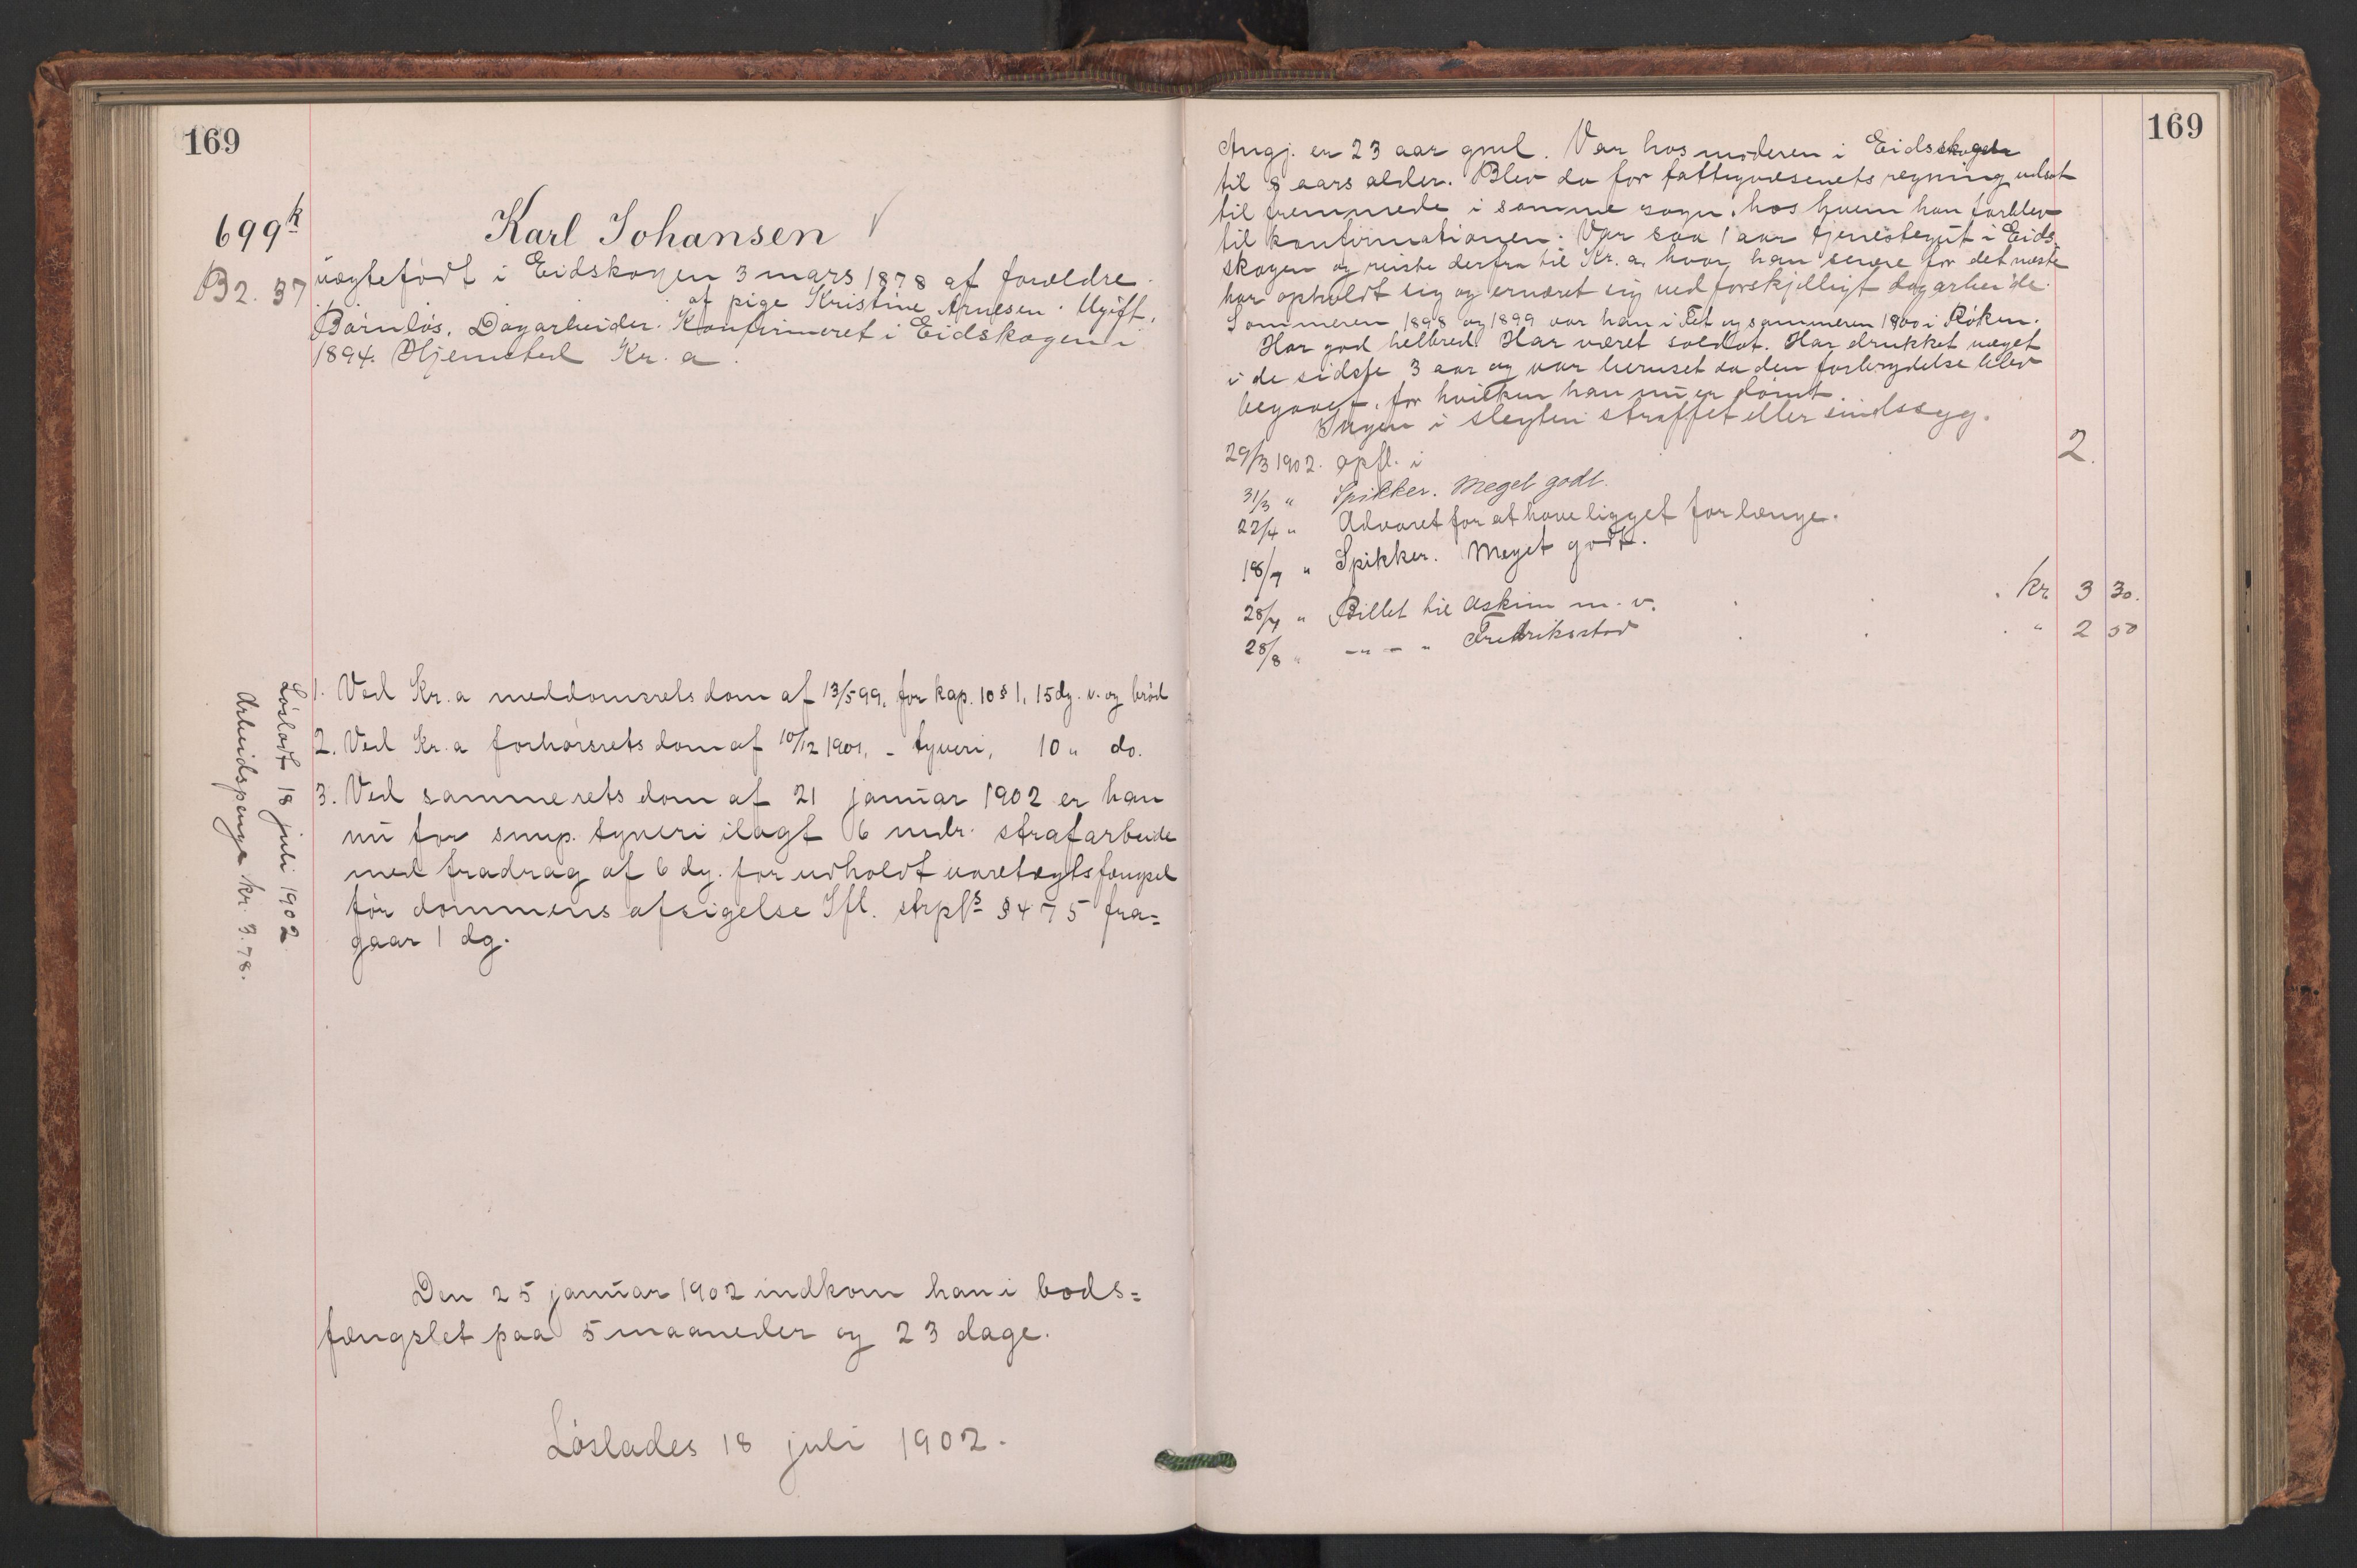 169
699k
B2. 37
Karl Johansen
uægtefødt i Eidskogen 3 mars 1878 af forældre
af pige Kristine Arnesen. Ugift.
Barnløs. Dagarbeider. Konfirmeret i Eidskogen i
1894. Hjemsted Kr.a.
1. Ved Kr.a meddomsrets dom af 13/5 99. for kap. 10 § 1, 15 dg. v. og brød
2. Ved Kr.a forhørsrets dom af 10/12 1901, - tyveri, 10 " do.
3. Ved samme rets dom af 21 januar 1902 er han
nu for simp. tyveri ilagt 6 mdr. strafarbeide
med fradrag af 6 dg. for udholdt varetægtsfængsel
før dommens afsigelse Ifl. strpls § 475 fra=
gaar 1 dg.
Løsladt 18 juli 1902.
Arbeidspenge kr. 3.78.
Den 25 januar 1902 indkom han i bods=
fængslet paa 5 maaneder og 23 dage.
Løslades 18 juli 1902.
169
Angj. er 23 aar gml. Var hos moderen i Eidskogen
til 8 aars alder. Blev da for fattigvæsenets regning udsat
til fremmede i samme sogn, hos hvem han forblev
til konfirmationen. Var saa 1 aar tjenestegut i Eids-
skogen og reiste derfra til Kr.a, hvor han senere for det meste
har opholdt sig og ernæret sig ved forskjelligt dagarbeide.
Sommeren 1898 og 1899 var han i Fet og sommeren 1900 i Røken.
Har god helbred. Har været soldat. Har drukket meget
i de sidste 3 aar og var beruset da den forbrydelse blev
begaaet, for hvilken han nu er dømt.
Ingen i slegten straffet eller sindssyg.
29/3 1902. opfl. i 2.
31/3 " Spikker. Meget godt.
22/4 " Advaret for at have ligget for længe.
18/7 " Spikker. Meget godt.
28/7 " Billet til Askim m. v. . . . kr 3 30.
28/8 " -"- " Fredriksstad . . . " 2 50